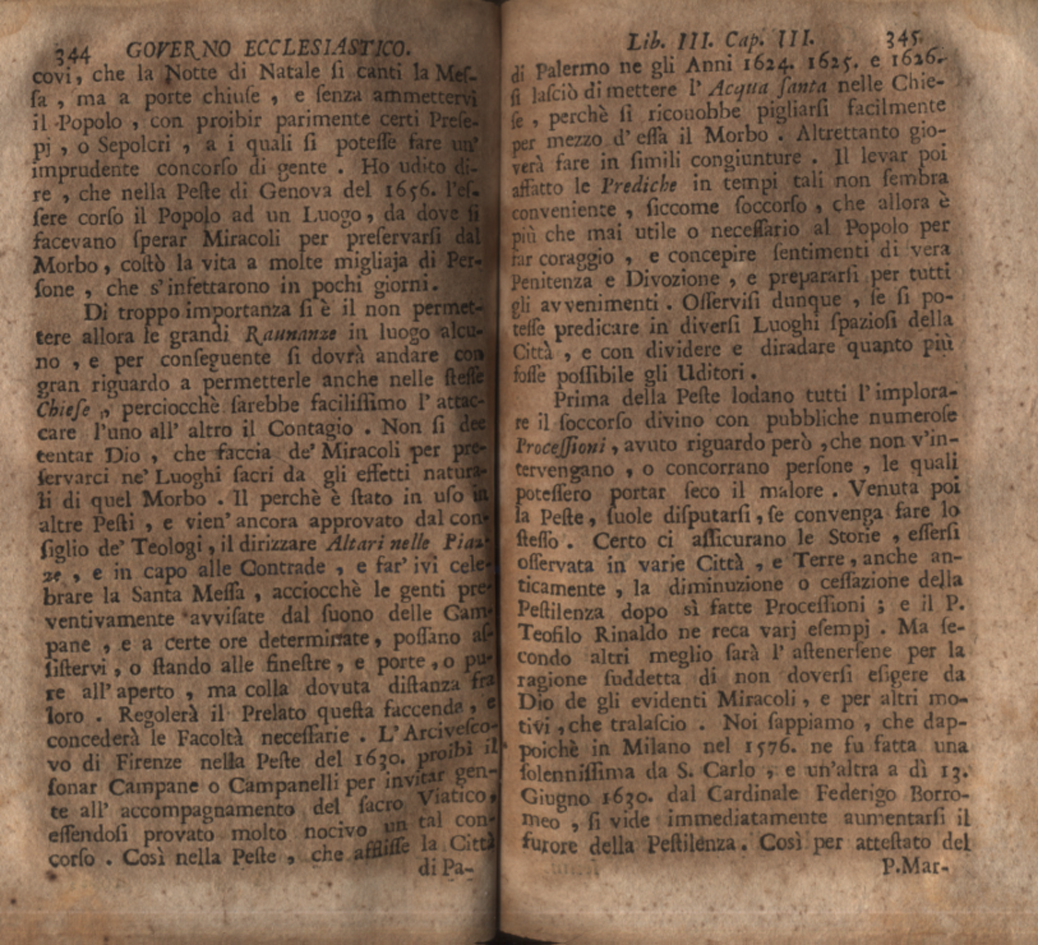 344 GOVERNO ECCLESIASTICO.
covi, che la Notte di Natale ſi canti la Meſ-
ſa, ma a porte chiuſe, e ſenza ammettervi
il Popolo, con proibir parimente certi Preſe-
pj, o Sepolcri, a i quali ſi poteſſe fare un'
imprudente concorſo di gente. Ho udito di-
re, che nella Peſte di Genova del 1656. l'eſ-
ſere corſo il Popolo ad un Luogo, da dove ſi
facevano ſperar Miracoli per preſervarſi dal
Morbo, coſtò la vita a molte migliaja di Per-
ſone, che s'infettarono in pochi giorni.
Di troppo importanza ſi è il non permet-
tere allora le grandi Raunanze in luogo alcu-
no, e per conſeguente ſi dovrà andare con
gran riguardo a permetterle anche nelle ſteſſe
Chieſe, perciocchè ſarebbe faciliſſimo l'attac-
care l'uno all' altro il Contagio. Non ſi dee
tentar Dio, che faccia de' Miracoli per pre-
ſervarci ne' Luoghi sacri da gli effetti natura-
li di quel Morbo. Il perchè è ſtato in uſo in
altre Peſti, e vien' ancora approvato dal con-
ſiglio de' Teologi, il dirizzare Altari nelle Piaz-
ze, e in capo alle Contrade, e far' ivi cele-
brare la Santa Meſſa, acciocchè le genti pre-
ventivamente avviſate dal ſuono delle Cam-
pane, e a certe ore determinate, poſſano aſ-
ſiſtervi, o ſtando alle fineſtre, e porte, o pu-
re all' aperto, ma colla dovuta diſtanza fra
loro. Regolerà il Prelato queſta faccenda, e
concederà le Facoltà neceſſarie. L'Arciveſco-
vo di Firenze nella Peſte del 1630. proibì il
ſonar Campane o Campanelli per invitar gen-
te all' accompagnamento del ſacro Viatico,
eſſendoſi provato molto nocivo un tal con-
corſo. Così nella Peſte, che afflisse la Città
di Pa-
Lib. III. Cap. III. 345
di Palermo ne gli Anni 1624. 1625. e 1626.
ſi laſciò di mettere l' Acqua ſanta nelle Chie-
ſe, perchè ſi riconobbe pigliarſi facilmente
per mezzo d' eſſa il Morbo. Altrettanto gio-
verà fare in ſimili congiunture. Il levar poi
affatto le Prediche in tempi tali non ſembra
conveniente, ſiccome ſoccorſo, che allora è
più che mai utile o neceſſario al Popolo per
far coraggio, e concepire ſentimenti di vera
Penitenza e Divozione, e prepararſi per tutti
gli avvenimenti. Oſſerviſi dunque, ſe ſi po-
teſſe predicare in diverſi Luoghi ſpazioſi della
Città, e con dividere e diradare quanto più
foſſe poſſibile gli Uditori.
Prima della Peſte lodano tutti l' implora-
re il ſoccorſo divino con pubbliche numeroſe
Proceſſioni, avuto riguardo però, che non v'in-
tervengano, o concorrano perſone, le quali
poteſſero portar ſeco il malore. Venuta poi
la Peſte, ſuole diſputarſi, ſe convenga fare lo
ſteſſo. Certo ci aſſicurano le Storie, eſſerſi
oſſervata in varie Città, e Terre, anche an-
ticamente, la diminuzione o ceſſazione della
Peſtilenza dopo sì fatte Proceſſioni; e il P.
Teofilo Rinaldo ne reca varj eſempj. Ma ſe-
condo altri meglio ſarà l' aſtenerſene per la
ragione ſuddetta di non doverſi eſigere da
Dio de gli evidenti Miracoli, e per altri mo-
tivi, che tralaſcio. Noi ſappiamo, che dap-
poichè in Milano nel 1576. ne fu fatta una
ſolenniſſima da S. Carlo, e un'altra a dì 13.
Giugno 1630. dal Cardinale Federigo Borro-
meo, ſi vide immediatamente aumentarſi il
furore della Peſtilenza. Così per atteſtato del
P.Mar-